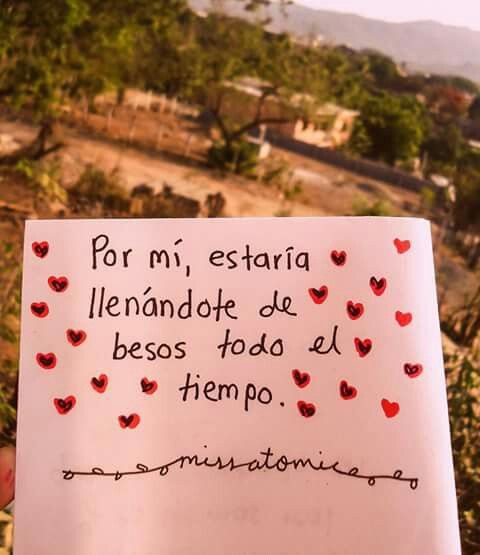 Por mí, estaría
llenándote de
besos todo el
tiempo.
missatomic